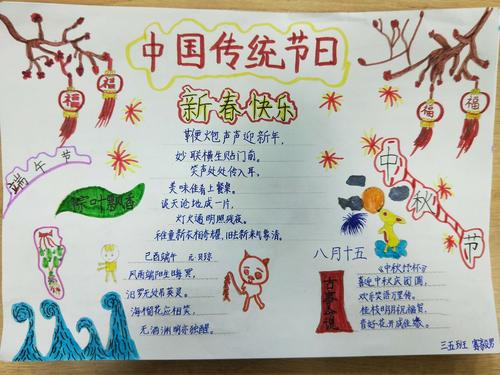 中国传统节日
福
福
福
福
新春快乐
鞭炮声声迎新年,
妙联横生贴门前。
笑声处处传入耳,
美味佳肴上餐桌。
谈天论地成一片,
灯火通明照残夜。
稚童新衣相奇耀,旧去新来
端午节
粽叶飘香
中秋节
己酉端午 元·贝琼
风雨端阳生晦冥,
汨罗无处吊英灵。
海榴花应相笑,
无酒渊明亦独醒。
八月十五
《中秋抒怀》
喜迎中秋庆团圆,
欢乐笑语万里传。
桂枝明月祝福智,
青好花开成佳缘。
三五班